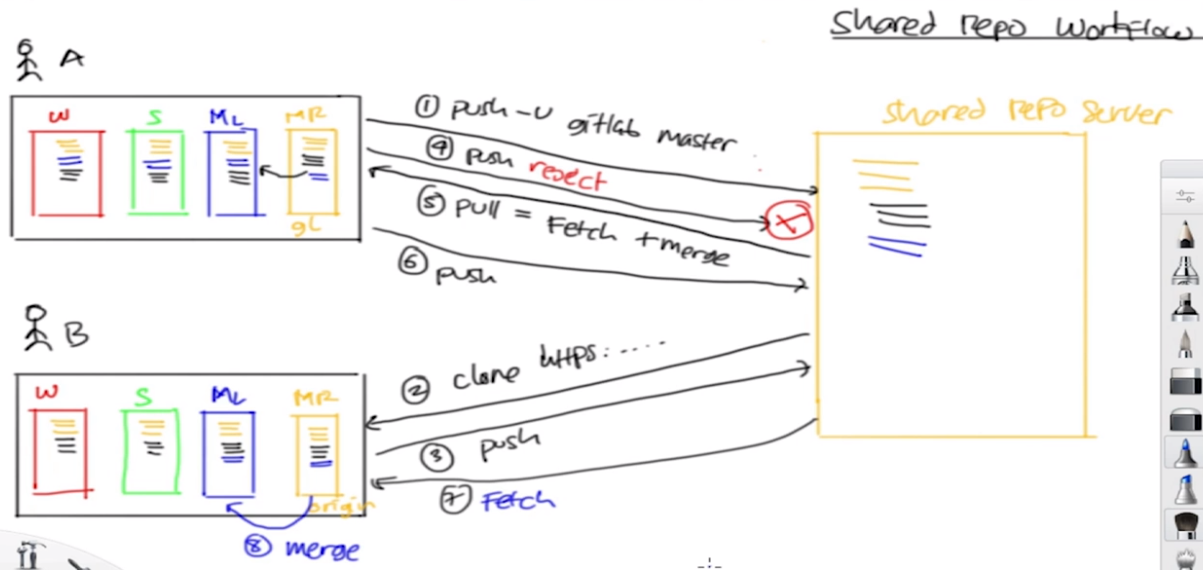 Shared repo Workflow
A
W S ML MR
gL
① push -u gitlab master
④ push reject
⑤ pull = Fetch + merge
⑥ push
Shared repo Server
B
W S ML MR
origin
② clone https:.....
③ push
⑦ Fetch
⑧ merge